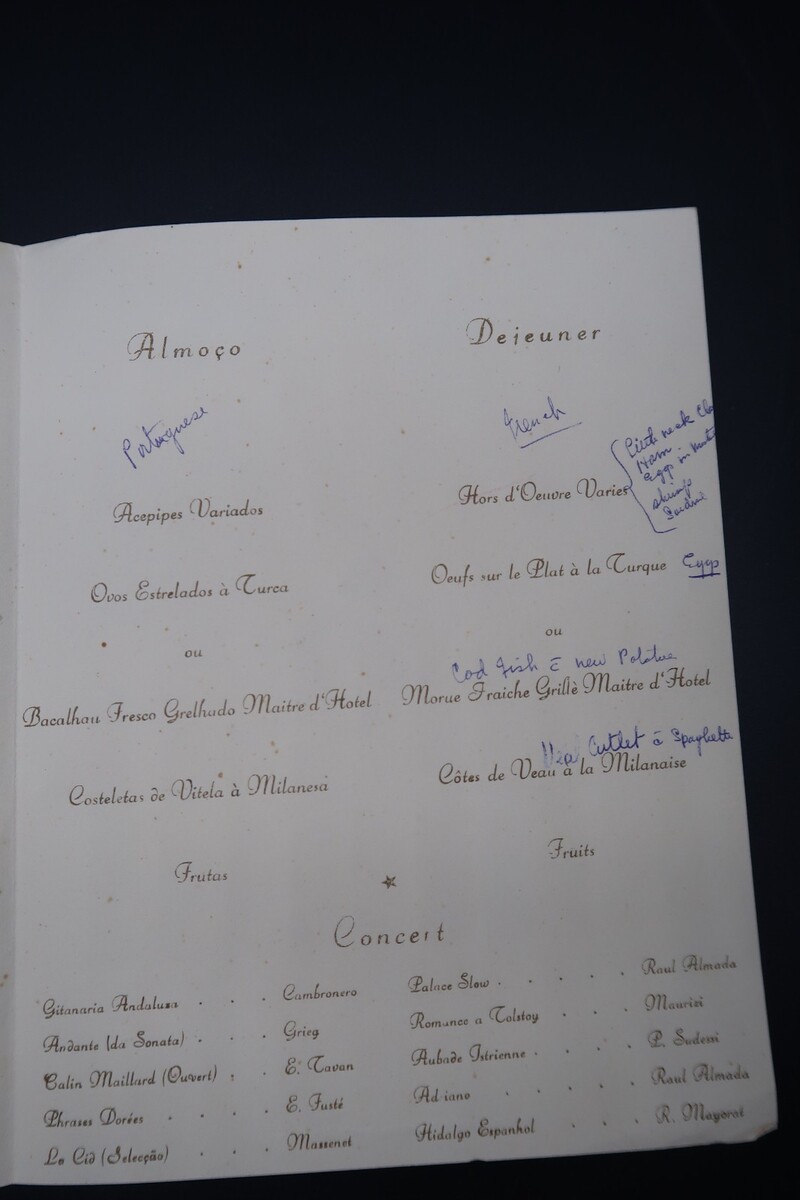 Almoço
Portuguese
Acepipes Variados
Ovos Estrelados à Turca
ou
Bacalhau Fresco Grelhado Maitre d'Hotel
Costeletas de Vitela à Milanesa
Frutas
Dejeuner
French
Hors d'Oeuvre Varies
Little neck
Ham
Eggs in
Oeufs sur le Plat à la Turque Eggs
ou
Cod Fish c̄ new
Morue Fraiche Grillè Maitre d'Hotel
Veal Cutlet c̄ Spaghetti
Côtes de Veau a la Milanaise
Fruits
Concert
Gitanaria Andaluza . . . Cambronero
Andante (da Sonata) . . . Grieg
Calin Maillard (Ouvert) . . E. Tavan
Phrases Dorées . . . . E. Fusté
Le Cid (Selecção) . . . Massenet
Palace Slow . . . . . Raul Almada
Romance a Tolstoy . . . Maurizi
Aubade Istrienne . . . . P. Sudessi
Ad iano . . . . . Raul Almada
Hidalgo Espanhol . . . R. Mayorat